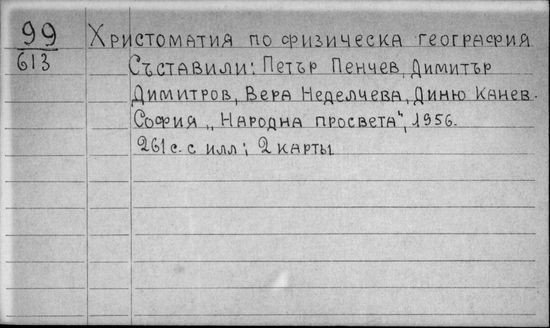 99 Христоматия по физическа география
613 Съставили: Петър Пенчев, Димитър
Димитров, Вера Неделчева, Диню Канев.
София „Народна просвета“, 1956.
261 с. с илл; 2 карты